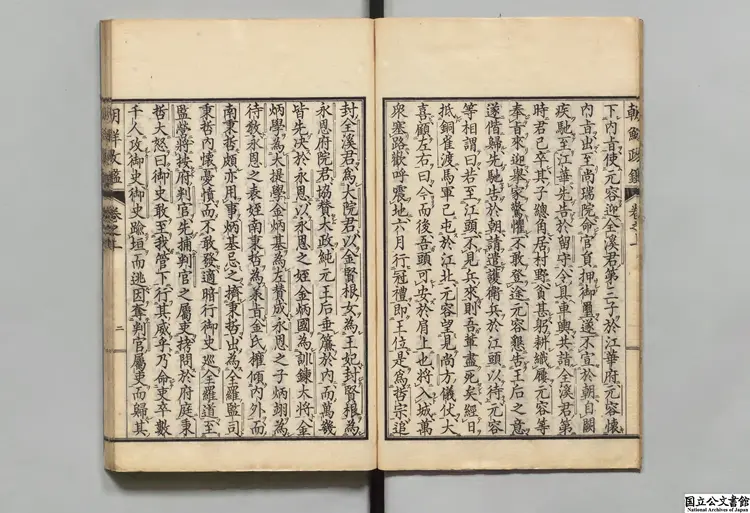 朝鮮政鑑 卷之上
下內旨使元容迎全溪君第三子於江華府元容懷
內旨出至尚瑞院命官負押御璽遂不宣於朝自闕
疾馳至江華先告於留守令具車輿共詣全溪君第
時君已卒其子總角居村野貧甚躬耕織屨元容等
奉旨來迎舉家驚懼不敢登途元容懇告王后之意
遂偕歸先馳告於朝請遣護衛兵於江頭以待元容
等相謂曰若至江頭不見兵來則吾輩盡死矣經日
抵銅雀渡馬軍已屯於江北元容望見尚方儀仗大
喜顧左右曰今而後吾頭可安於肩上也將入城萬
衆塞路歡呼震地六月行冠禮即王位是為哲宗追
封全溪君為大院君以金賢根女為王妃封賢根為
永恩府院君協贊大政純元王后垂簾於內而萬幾
皆先決於永恩以永恩之姪金炳國為訓鍊大將金
炳學為大提學金炳基為左贊成永恩之子炳翊為
待敎永恩之表姪南秉哲為承旨金氏權傾內外而
南秉哲頗亦用事炳基忌之擠秉哲出為全羅監司
秉哲內懷憂憤而不敢發適暗行御史巡全羅道至
監營將按府判官先捕判官之屬吏拷問於府庭秉
哲大怒曰御史敢至我管下行其威乎乃命吏卒數
千人攻御史御史踰垣而逃因奪判官屬吏而歸其
朝鮮政鑑 卷之上 二
国立公文書館
National Archives of Japan